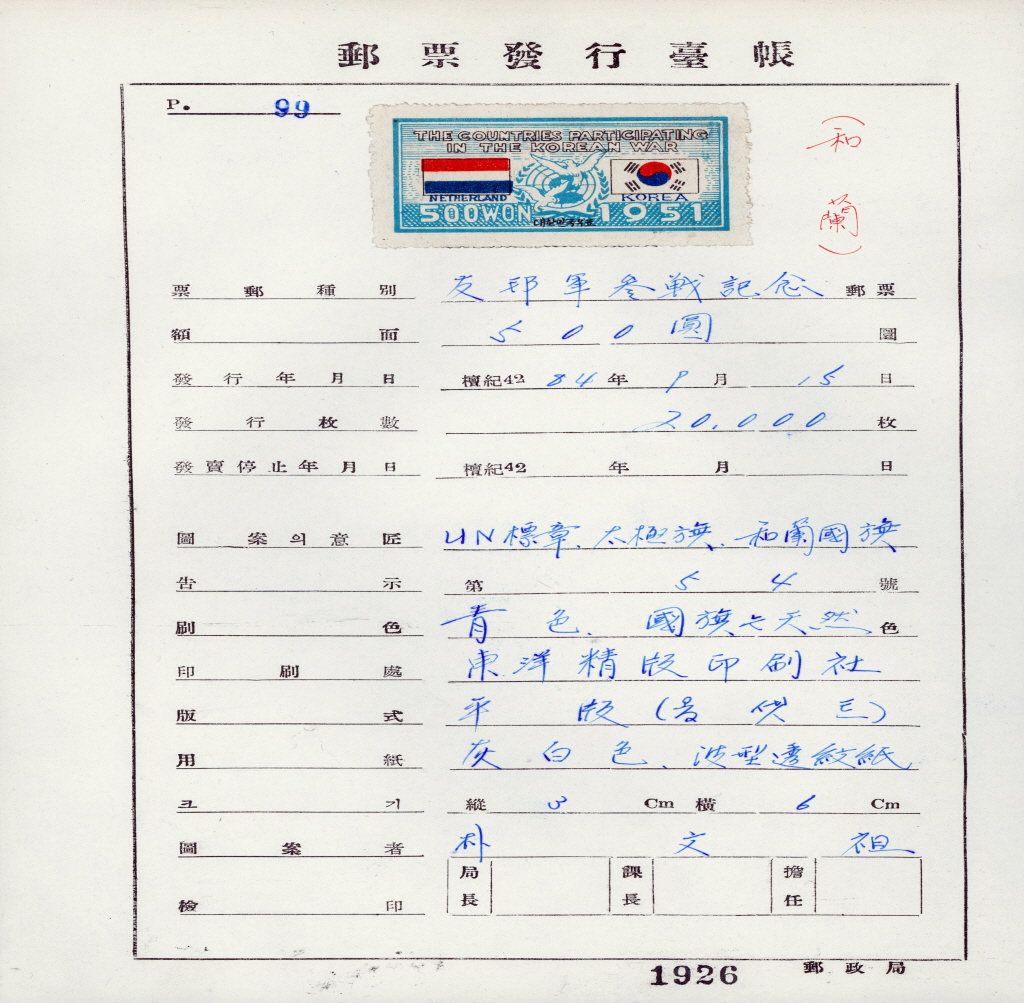 郵票發行臺帳
P. 99
THE COUNTRIES PARTICIPATING
IN THE KOREAN WAR
NETHERLAND KOREA
500WON 대한민국우표 1951
(和蘭)
票郵種別 友邦軍參戰記念 郵票
額面 500圓 圜
發行年月日 檀紀42 84年 9月 15日
發行枚數 20,000 枚
發賣停止年月日 檀紀42 年 月 日
圖案의意匠 UN標章、太極旗、和蘭國旗
告示 第 54 號
刷色 青色、國旗と天然色
印刷處 東洋精版印刷社
版式 平版
用紙 灰白色、波型透紋紙
크기 縱 3 Cm 橫 6 Cm
圖案者 朴文祖
檢印 局長 課長 擔任
1926 郵政局